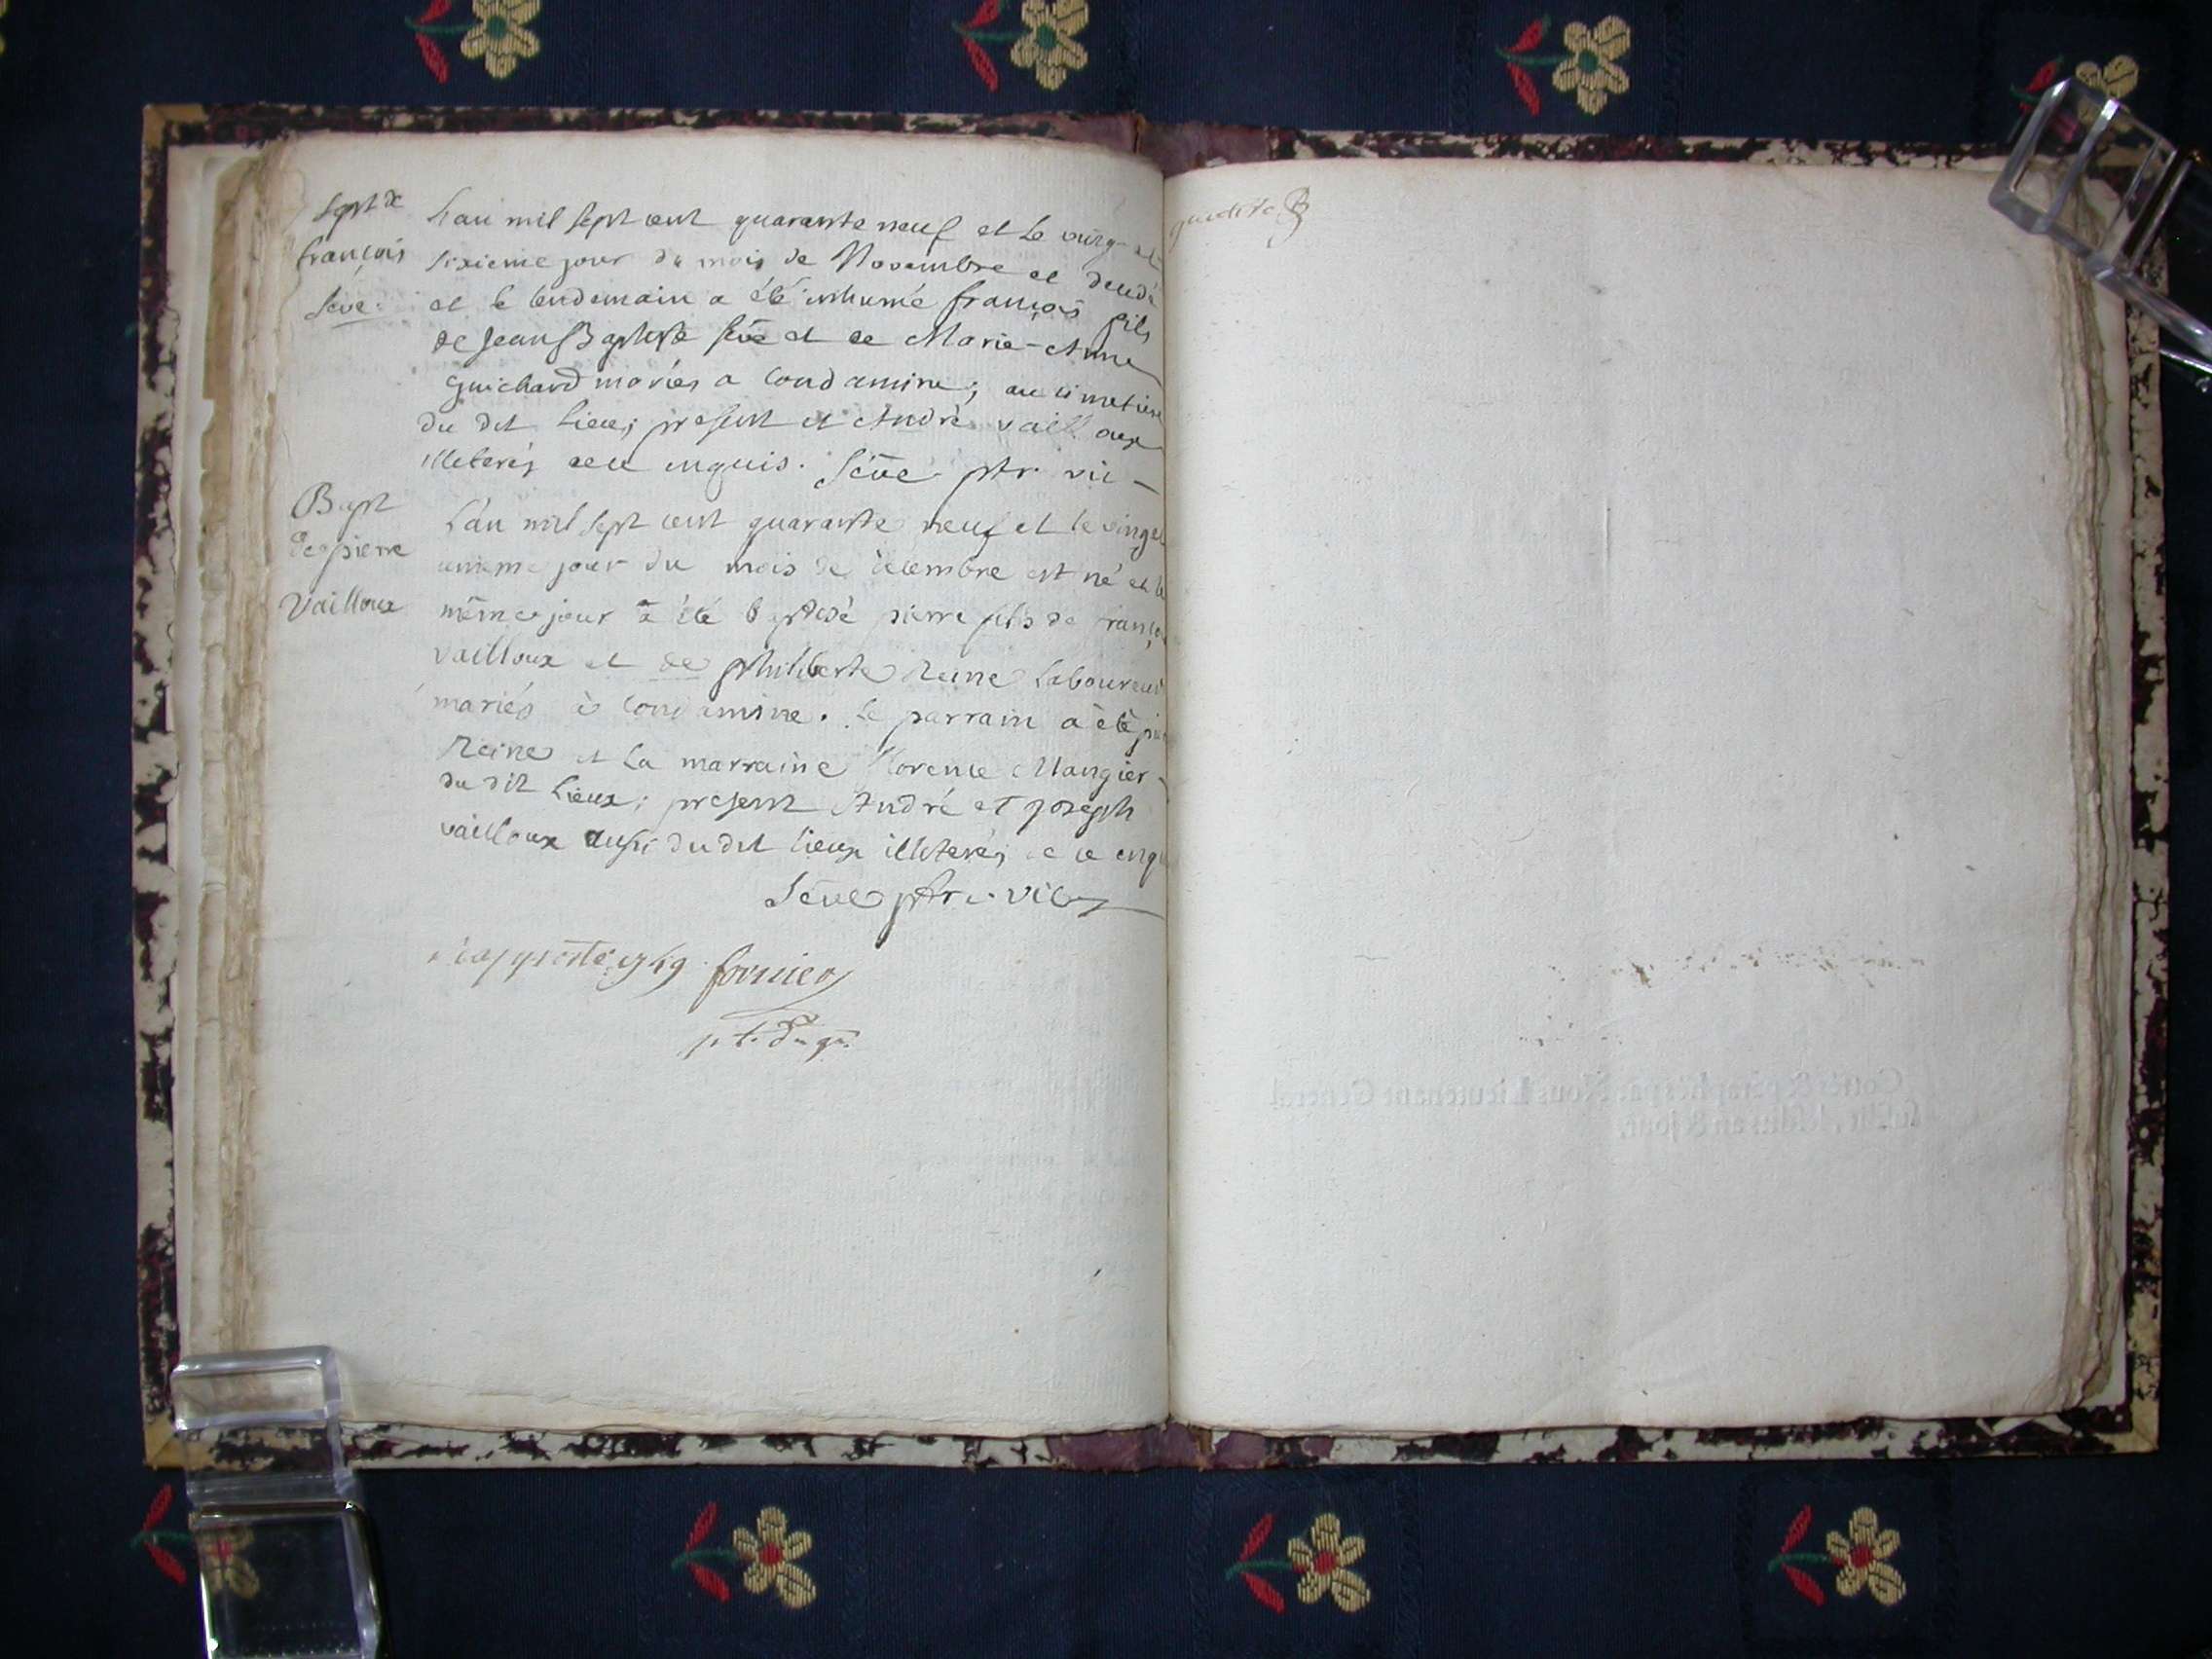 Sept de
françois
Seve.
L'an mil sept cent quarante neuf et le vingt et
sixieme jour du mois de Novembre et decedé
et le lendemain a été inhumé françois fils
de Jean Baptiste Sève et de Marie-Anne
Guichard mariés a Condamine; au cimetiere
du dit lieu; present et André vailloux
illeterés de ce enquis. Sève ptr. vic -
Bapt
de pierre
Vailloux
L'an mil sept cent quarante neuf et le vingt
unieme jour du mois de decembre est né et le
même jour a été baptisé pierre fils de franço
vailloux et de philiberte Reine Laboureur
mariés à Condamine. Le parrain a été pi
Reine et la marraine florence Maugier
du dit lieux; present André et Joseph
vailloux aussi du dit lieux illeterés de ce enqu
Sève ptre. vic
rapporté 1749 fornier
Cottés & paraphés par Nous Lieutenant General